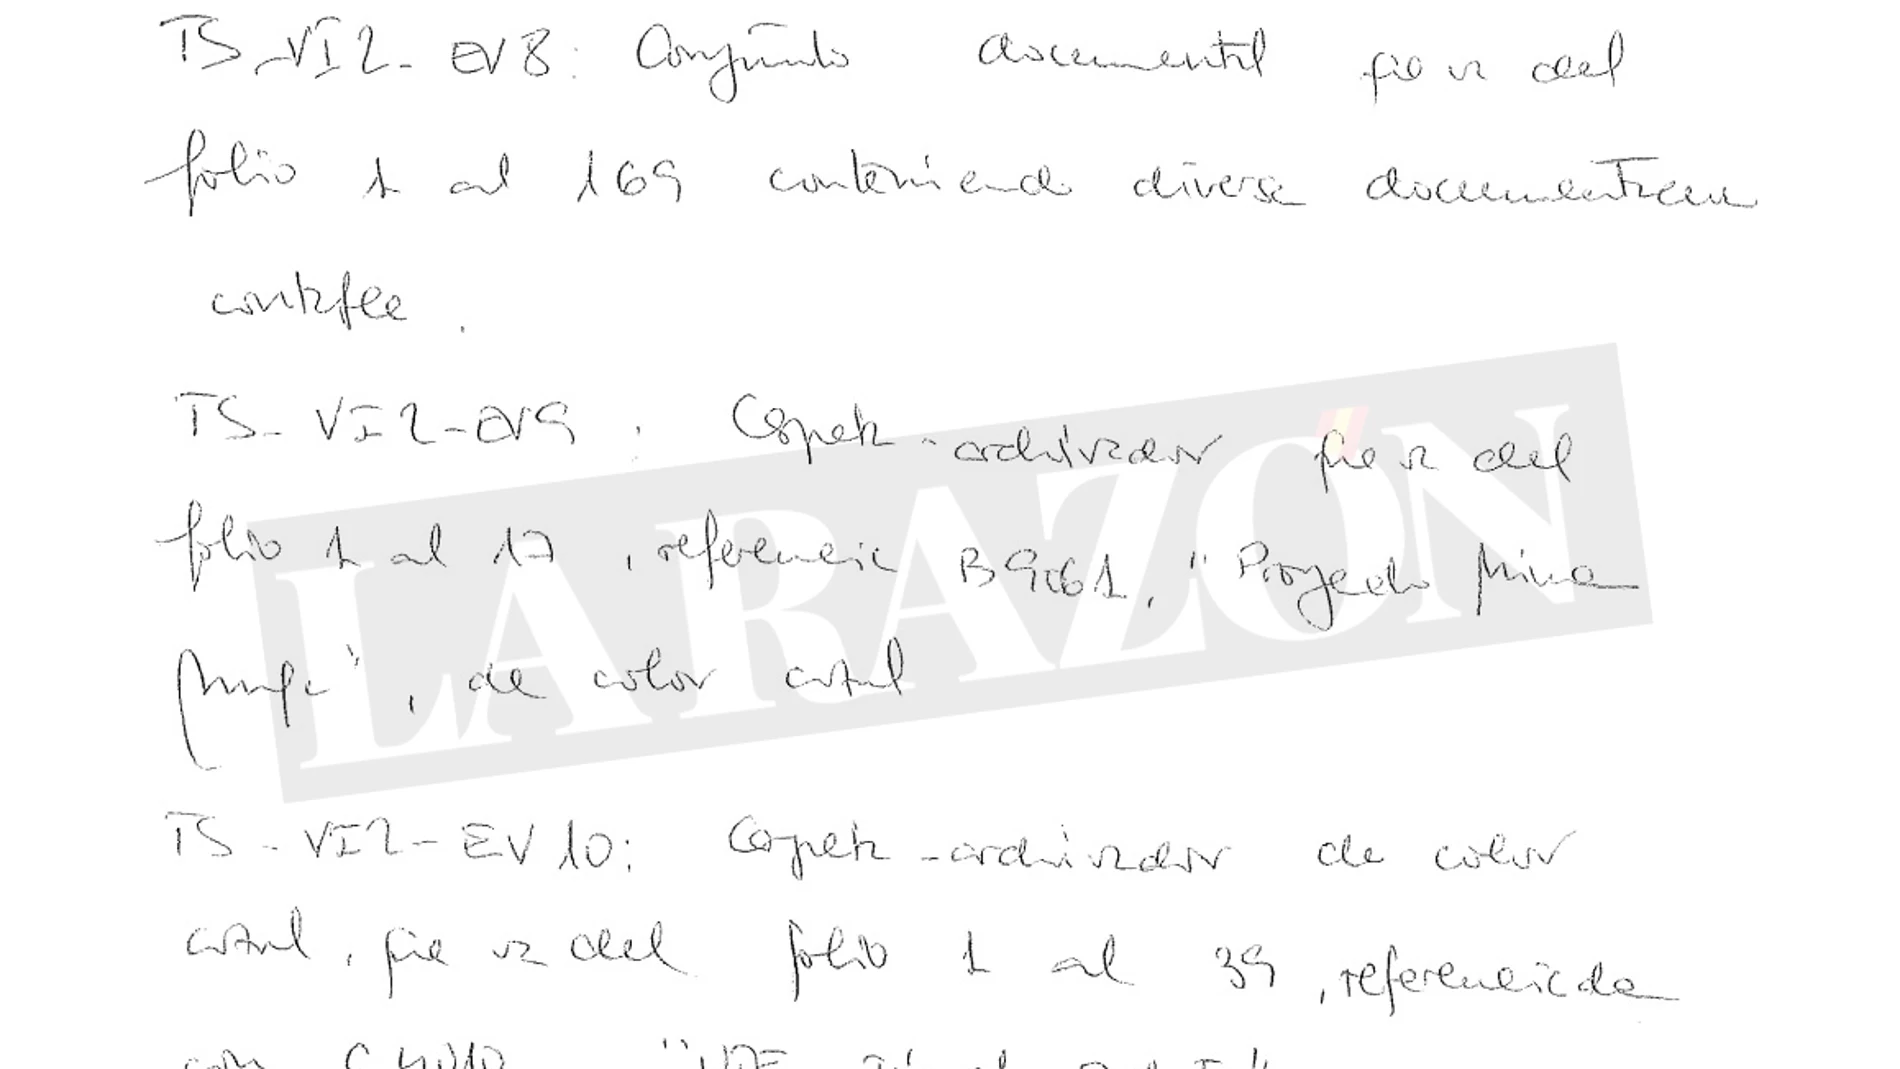 TS-VI2-EV8: Conjunto documental que va del
folio 1 al 169 conteniendo diversa documentación
contable.
TS-VI2-EV9: Carpeta-archivador que va del
folio 1 al 17, referencia B9061, "Proyecto Mina
Muga", de color azul
LA RAZÓN
TS-VI2-EV10: Carpeta-archivador de color
azul, que va del folio 1 al 39, referenciada
con